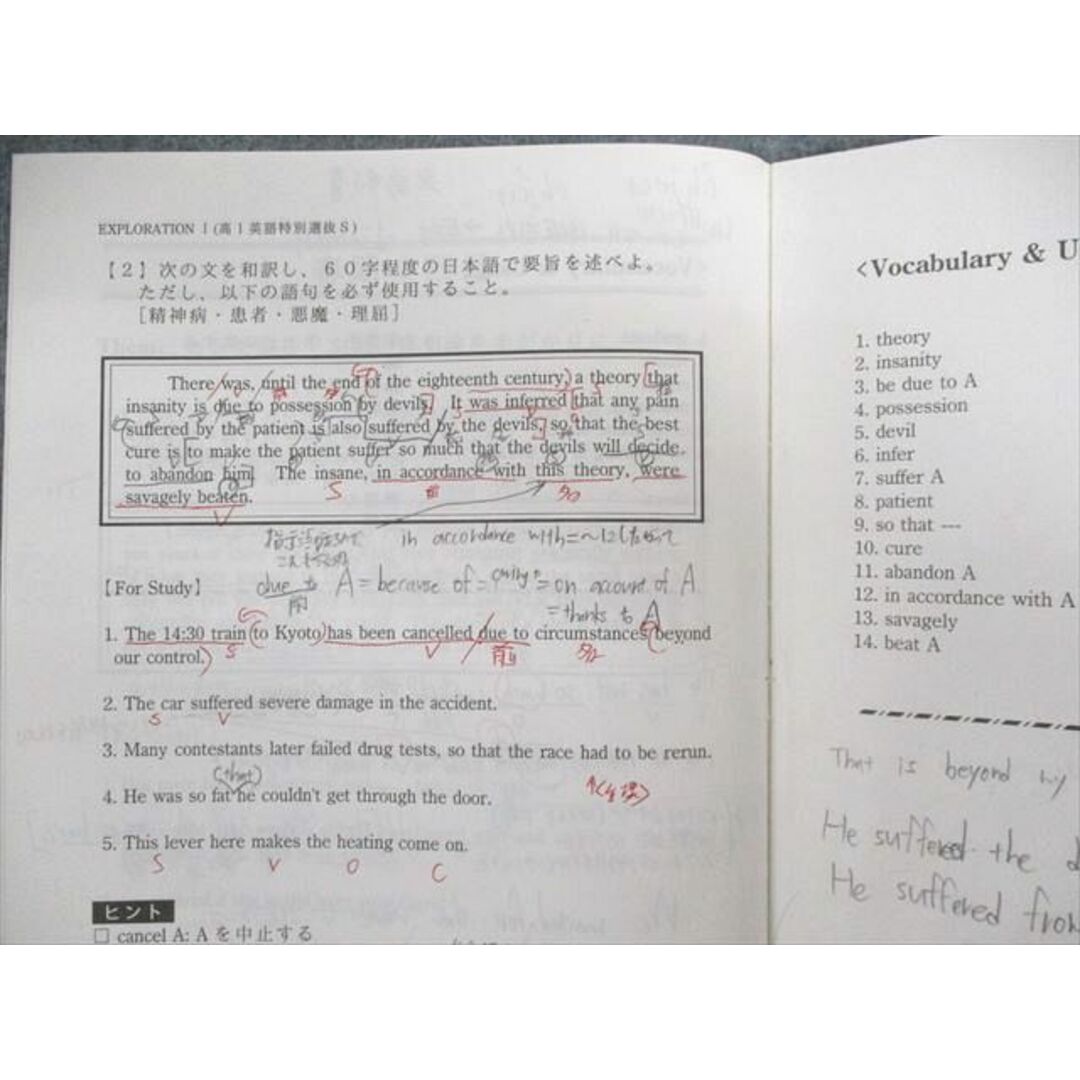 EXPLORATION Ⅰ (高1英語特別選抜S)
【2】次の文を和訳し、60字程度の日本語で要旨を述べよ。
ただし、以下の語句を必ず使用すること。
[精神病・患者・悪魔・理屈]
There was, until the end of the eighteenth century, a theory that
insanity is due to possession by devils. It was inferred that any pain
suffered by the patient is also suffered by the devils, so that the best
cure is to make the patient suffer so much that the devils will decide
to abandon him. The insane, in accordance with this theory, were
savagely beaten.
S
前
名
V
in accordance with=〜にしたがって
【For Study】
due to A = because of = owing to = on account of A
前
= thanks to A
1. The 14:30 train (to Kyoto) has been cancelled due to circumstances (beyond
our control.)
S
V
前
名
2. The car suffered severe damage in the accident.
S
V
3. Many contestants later failed drug tests, so that the race had to be rerun.
(that)
4. He was so fat he couldn't get through the door.
5. This lever here makes the heating come on.
S
V
O
C
ヒント
□ cancel A: A を中止する
<Vocabulary & U
1. theory
2. insanity
3. be due to A
4. possession
5. devil
6. infer
7. suffer A
8. patient
9. so that ---
10. cure
11. abandon A
12. in accordance with A
13. savagely
14. beat A
That is beyond my
He suffered the d
He suffered from